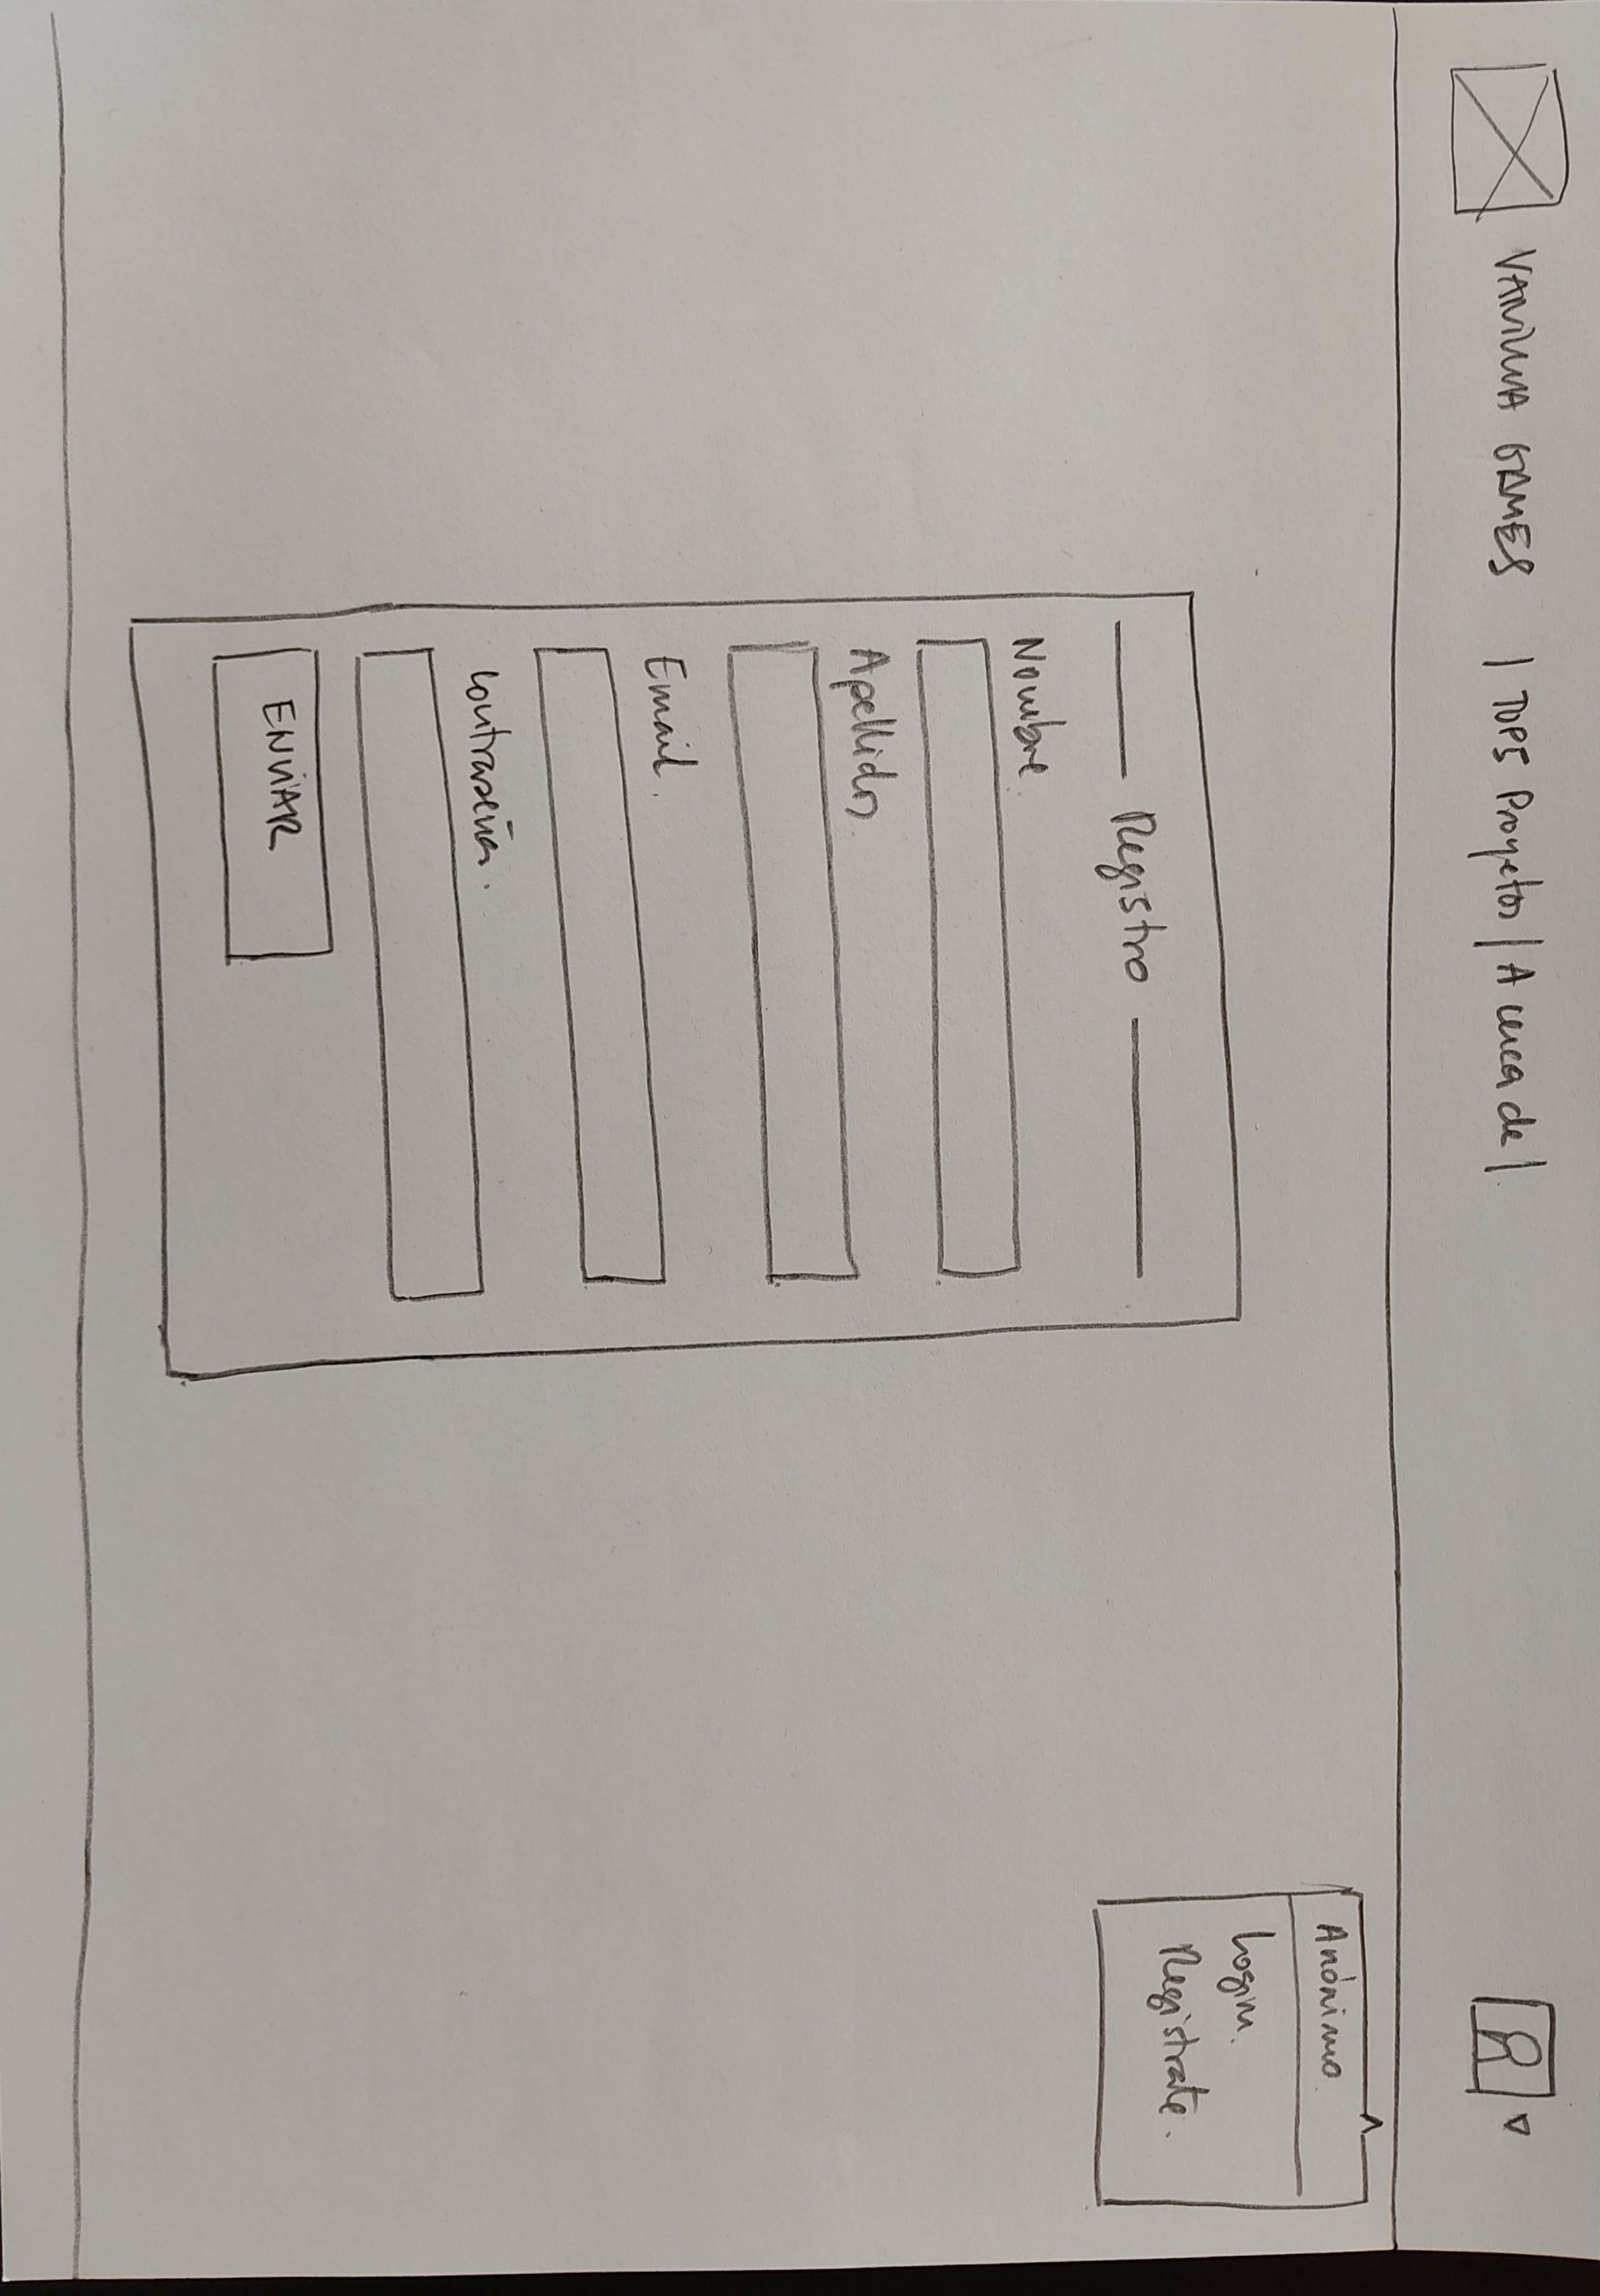 VANILLA GAMES | TOP5 Proyetos | Acerca de |
Anónimo
Login.
Registrate.
Registro
Nombre
Apellidos
Email.
Contraseña.
ENVIAR